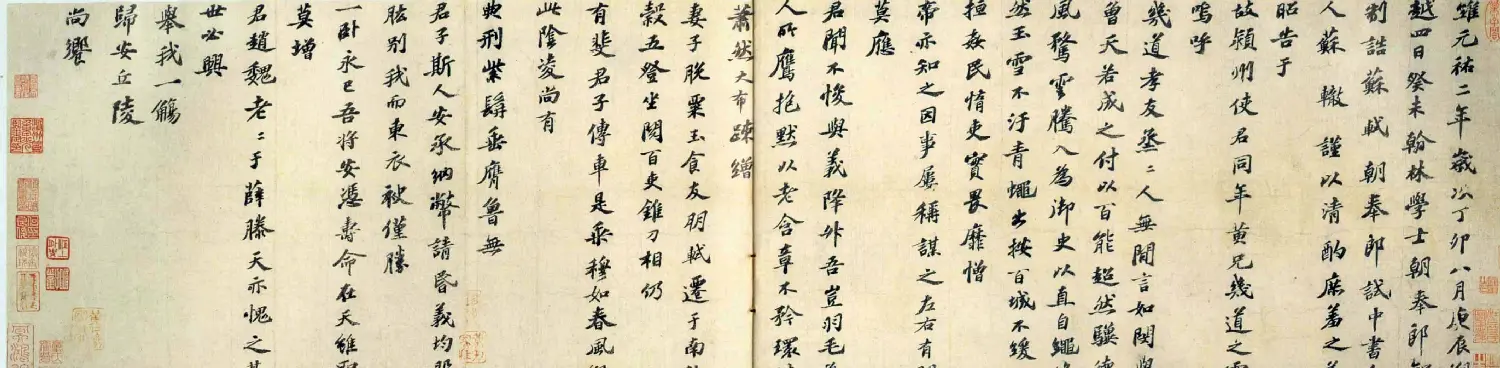 維元祐二年歲次丁卯八月庚辰朔
越四日癸未翰林學士朝奉郎知
制誥蘇軾朝奉郎試中書舍
人蘇轍謹以清酌庶羞之奠
昭告于
故潁州使君同年黃兄幾道之靈
嗚呼
幾道孝友烝=人無間言如閔與
曾天若成之付以百能超然驥德
風騖雲騰入為御史以直自繩
然玉雪不汙青蠅出按百城不緩
擅姦民惰吏實畏靡憎
帝亦知之因事屢稱謀之左右有問
莫應
君聞不悛與義降升吾豈羽毛
人所鷹抱默以老含章不矜環
蕭然大布疎繒
妻子脫粟玉食友朋軾遷于南
穀五登坐閱百吏錐刀相仍
有斐君子傳車是乘穆如春風
此陰凌尚有
典刑紫髯垂膺魯無
君子斯人安承納幣請昏義均股
肱別我而東衣袂僅勝
一卧永已吾將安憑壽命在天雖
莫增
君趙魏老=于薛滕天亦愧之其
世必興
舉我一觴
歸安丘陵
尚饗